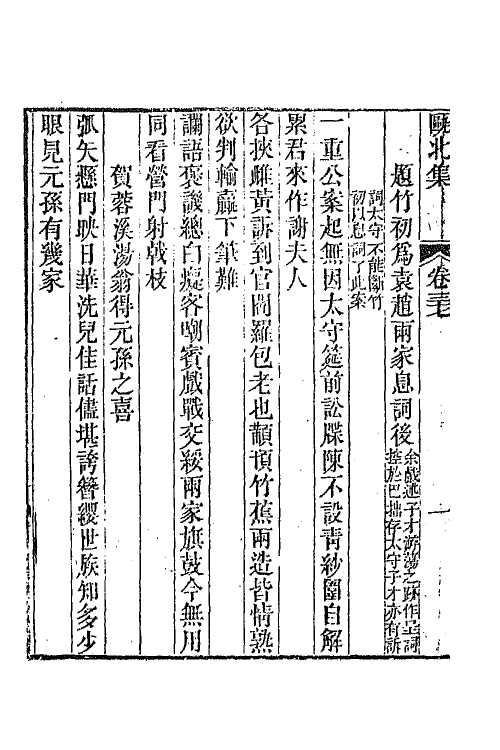 甌北集 卷 一
題竹初爲袁趙兩家息詞後 余戲述子才游蕩之跡作呈詞
控於巴拙存太守子才亦有訴
詞太守不能斷竹
初以息詞了此案
一重公案起無因太守筵前訟牒陳不設靑紗圍自解
累君來作謝夫人
各挾雌黃訴到官閻羅包老也顢頇竹蕉兩造皆情熟
欲判輸贏下筆難
讕語褒譏總白癡客嘲賓戲戰交綏兩家旗鼓今無用
同看營門射戟枝
賀蓉溪湯翁得元孫之喜
弧矢懸門映日華洗兒佳話儘堪誇簪纓世族知多少
眼見元孫有幾家